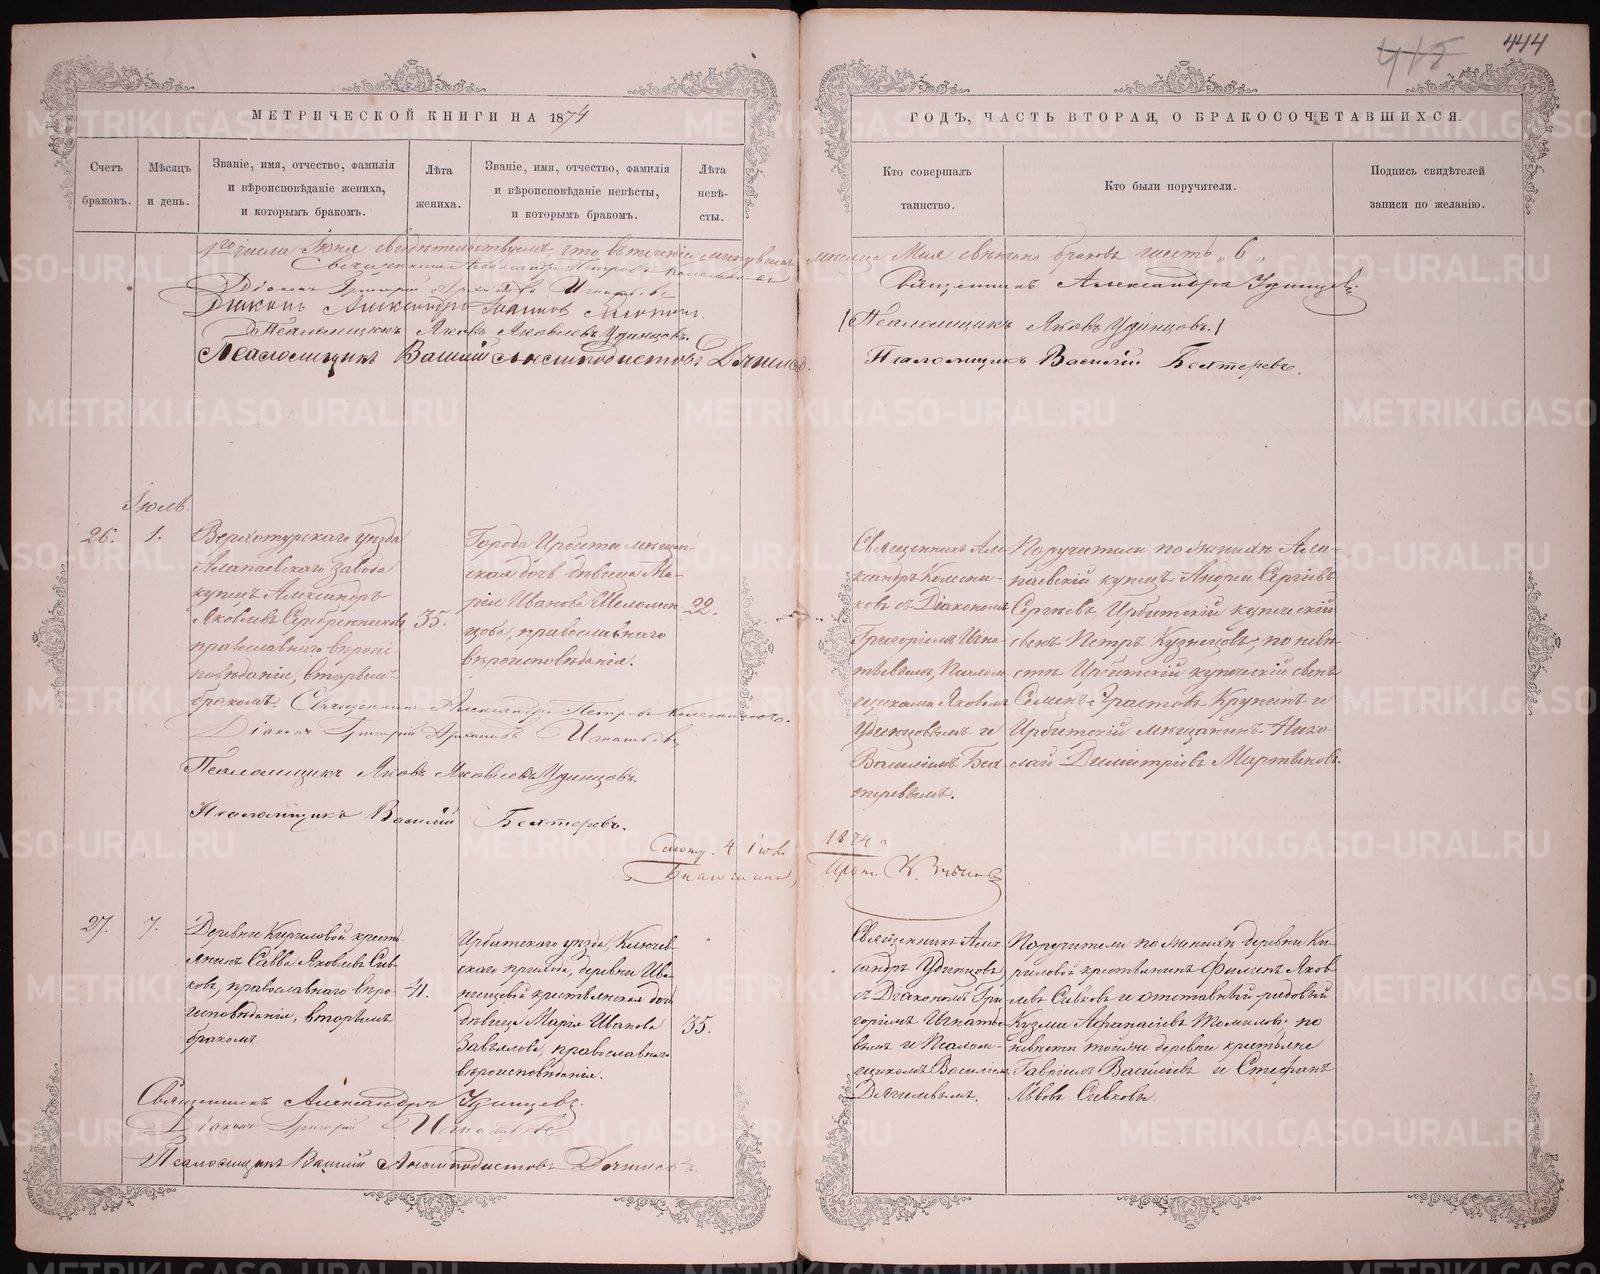 444
МЕТРИЧЕСКОЙ КНИГИ НА 1874
ГОДЪ, ЧАСТЬ ВТОРАЯ, О БРАКОСОЧЕТАВШИХСЯ.
Счетъ
браковъ.
Мѣсяцъ
и день.
Званіе, имя, отчество, фамилія
и вѣроисповѣданіе жениха,
и которымъ бракомъ.
Лѣта
жениха.
Званіе, имя, отчество, фамилія
и вѣроисповѣданіе невѣсты,
и которымъ бракомъ.
Лѣта
невѣ-
сты.
Кто совершалъ
таинство.
Кто были поручители.
Подпись свидѣтелей
записи по желанію.
1го числа Іюня свидѣтельствуемъ, что въ теченіи минувшаго мѣсяца Мая вѣнчано браковъ шесть „6„
Священникъ Александръ Петровъ Колесниковъ
Діаконъ Григорій Игнатьевъ
Діаконъ Александръ
Псаломщикъ Яковъ Яковлевъ Удинцовъ.
Псаломщикъ Василій Дягилевъ.
Священникъ Александръ Удинцевъ
Псаломщикъ Яковъ Удинцовъ.
Псаломщикъ Василій Бехтеревъ.
Іюль.
26.
1.
Верхотурскаго уѣзда
Алапаевскаго завода
купецъ Александръ
Яковлевъ Серебренниковъ,
православнаго вѣроис-
повѣданія, вторымъ
бракомъ.
35.
Города Ирбити мѣщан-
ская дочь дѣвица Ма-
рія Иванова Шеломен-
цова, православнаго
вѣроисповѣданія.
22.
Священникъ Але-
ксандръ Колесни-
ковъ съ Діакономъ
Григоріемъ Игна-
тьевымъ, Псалом-
щиками Яковомъ
Удинцовымъ и
Василіемъ Бех-
теревымъ.
Поручители по женихѣ Ала-
паевскій купецъ Андрей Сергіевъ
Сергѣевъ, Ирбитскій купеческій
сынъ Петръ Кузнецовъ; по невѣ-
стѣ Ирбитскій купеческій сынъ
Семенъ Ерастовъ Крутинъ и
Ирбитскій мѣщанинъ Нико-
лай Димитріевъ Мартьяновъ.
Священникъ Александръ Петровъ Колесниковъ.
Діаконъ Григорій Игнатьевъ
Псаломщикъ Яковъ Яковлевъ Удинцовъ.
Псаломщикъ Василій Бехтеревъ.
4 Іюл. 1874.
Благочин. Прот.
27.
7.
Деревни Кириловой кресть-
янинъ Савва Яковлевъ Сив-
ковъ, православнаго вѣро-
исповѣданія, вторымъ
бракомъ.
41.
Ирбитскаго уѣзда, Ключев-
скаго прихода, деревни Ива-
нищевой крестьянская дочь
дѣвица Марія Иванова
Завьялова, православнаго
вѣроисповѣданія.
35.
Священникъ Алек-
сандръ Удинцовъ
съ Діакономъ Гри-
горіемъ Игнатье-
вымъ и Псалом-
щикомъ Василіемъ
Дягилевымъ.
Поручители по женихѣ деревни Ки-
риловой крестьянинъ Филипъ Яков-
левъ Сивковъ и отставный рядовый
Кузма Афанасіевъ Томиловъ; по
невѣстѣ той же деревни крестьяне
Гавріилъ Василіевъ и Стефанъ
Львовъ Сивковы.
Священникъ Александръ Удинцевъ
Діаконъ Григорій Игнатьевъ
Псаломщикъ Василій Дягилевъ.
METRIKI.GASO-URAL.RU